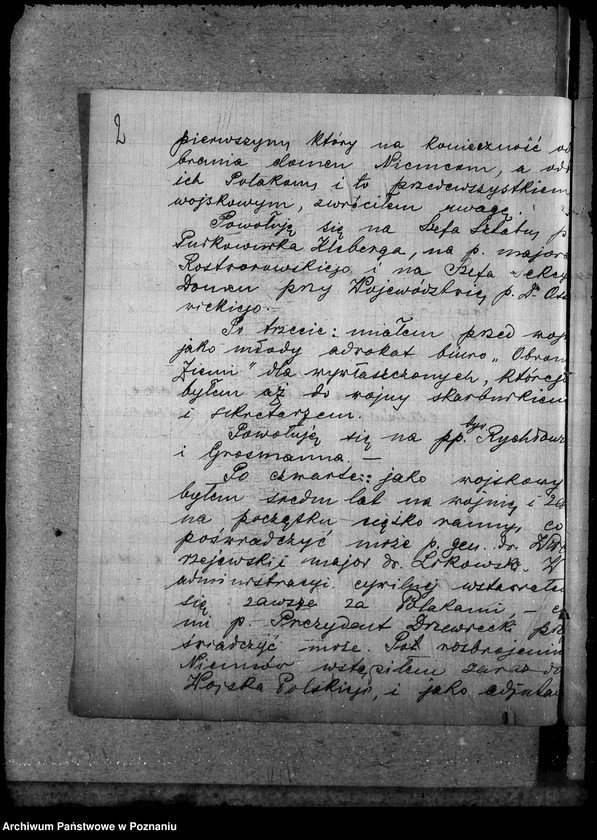 2
pierwszym, który na konieczność od
brania domen Niemcom, a od
ich Polakom, i to przedewszystkiem
wojskowym, zwróciłem uwagę.
Powołuję się na Szefa Sztabu, p.
Kleberga, na p. majora
Rostworowskiego i na Szefa Sekcyi
Domen przy Województwie, p. Dr.
wickiego.
Po trzecie: miałem przed woj
jako młody adwokat biuro „Obron
Ziemi" dla wywłaszczonych, których
byłem aż do wojny skarbnikiem
i sekretarzem.
Powołuję się na pp. Rychłow
i Grosmanna. —
Po czwarte: jako wojskowy
byłem siedm lat na wojnie, i
na początku ciężko ranny, co
poświadczyć może p. gen. dr.
rzejewski i major dr. W
administracyi cywilnej wstawiałem
się zawsze za Polakami, — c
mi p. Prezydent Drzewiecki
świadczyć może. Po rozbrojeniu
Niemców wstąpiłem zaraz do
Wojska Polskiego, i jako adjutan
Archiwum Państwowe w Poznaniu